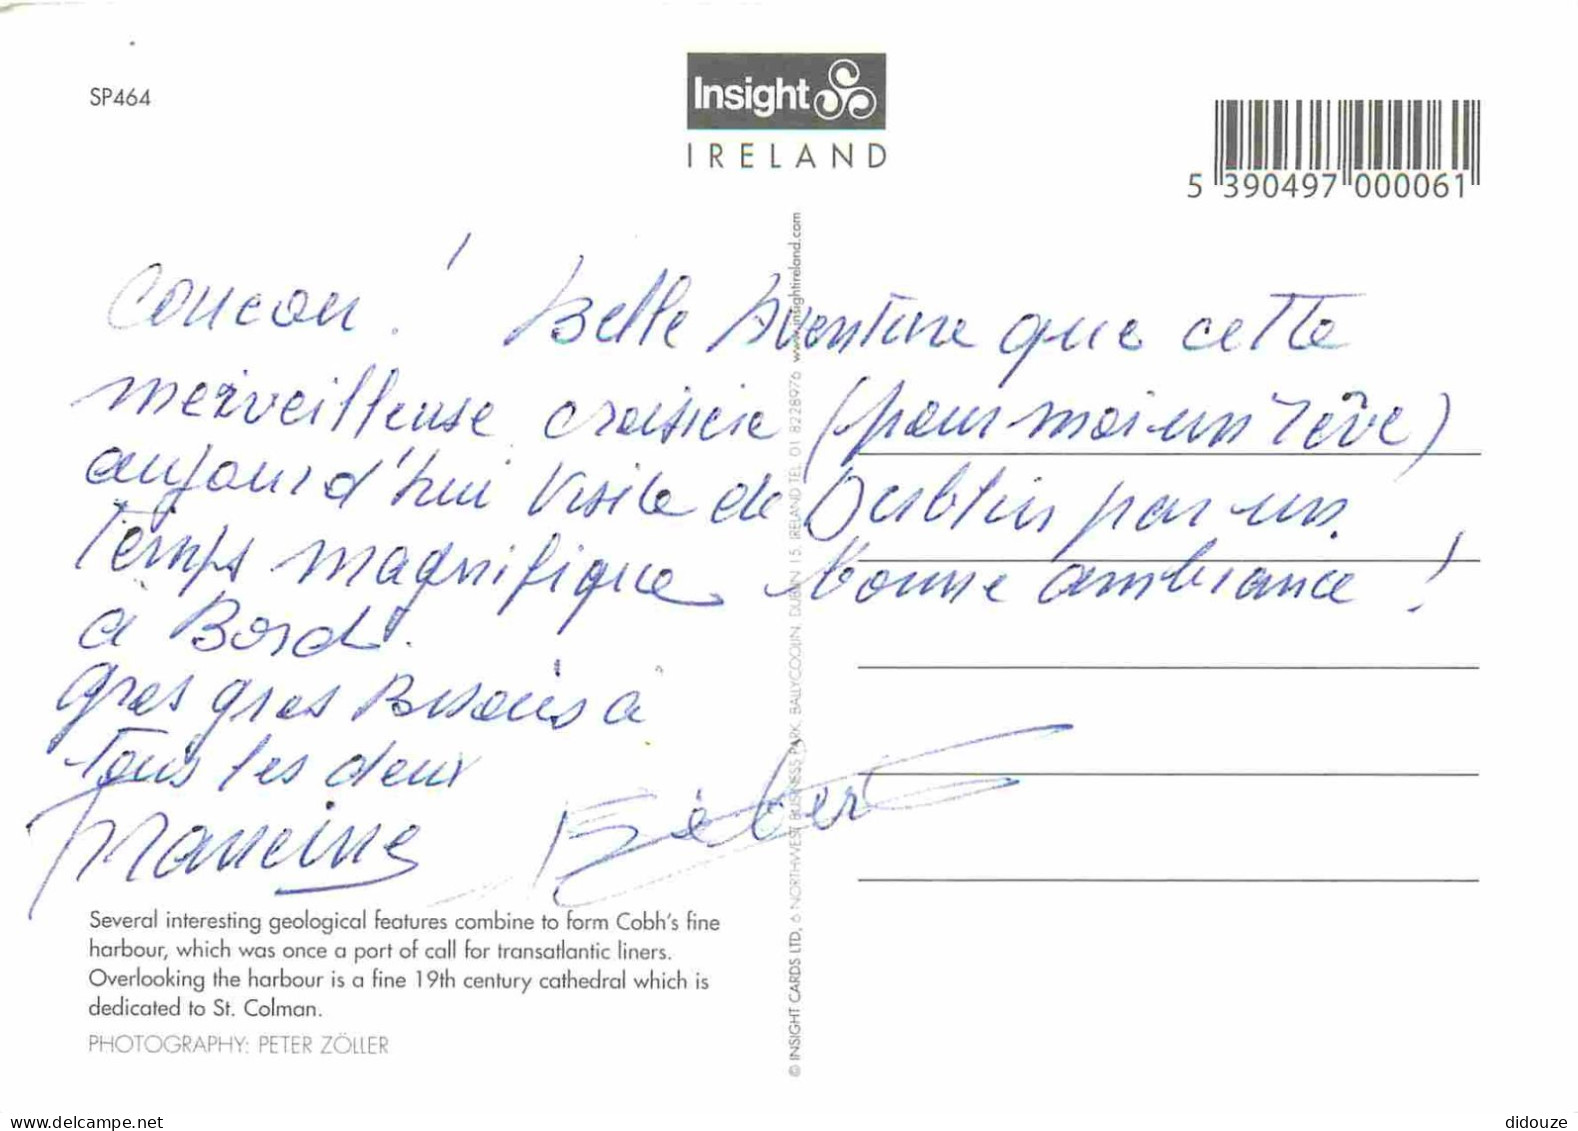 SP464
Insight
IRELAND
5 390497 000061
Coucou ! Belle Aventure que cette
merveilleuse croisière (pour moi un rêve)
aujourd'hui visite de Dublin par un
temps magnifique bonne ambiance !
à Bord.
gros gros Bisous à
Tous les deux
Francine
Several interesting geological features combine to form Cobh's fine
harbour, which was once a port of call for transatlantic liners.
Overlooking the harbour is a fine 19th century cathedral which is
dedicated to St. Colman.
PHOTOGRAPHY: PETER ZÖLLER
© INSIGHT CARDS LTD, 6 NORTHWEST BUSINESS PARK, BALLYCOOLIN, DUBLIN 15, IRELAND TEL 01 8228976 www.insightireland.com
delcampe.net
didouze